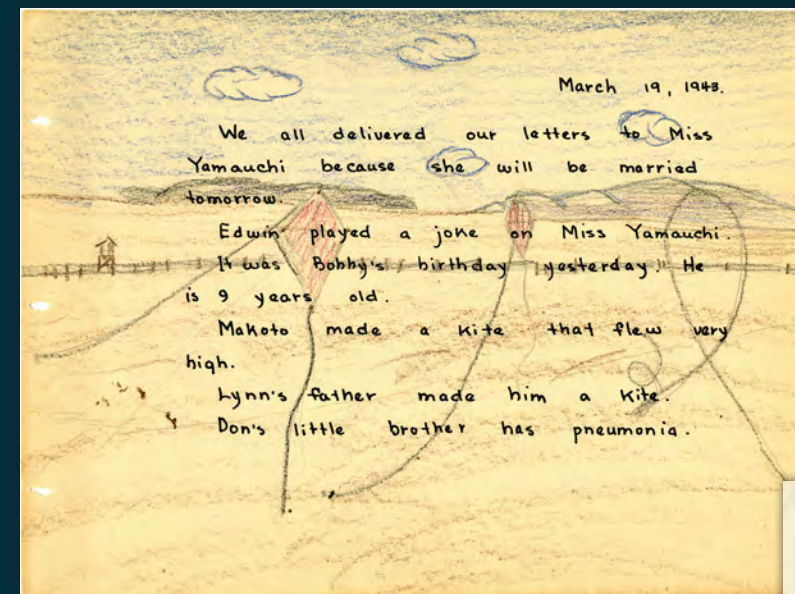 March 19, 1943.
We all delivered our letters to Miss
Yamauchi because she will be married
tomorrow.
Edwin played a joke on Miss Yamauchi.
It was Bobby's birthday yesterday. He
is 9 years old.
Makoto made a kite that flew very
high.
Lynn's father made him a kite.
Don's little brother has pneumonia.